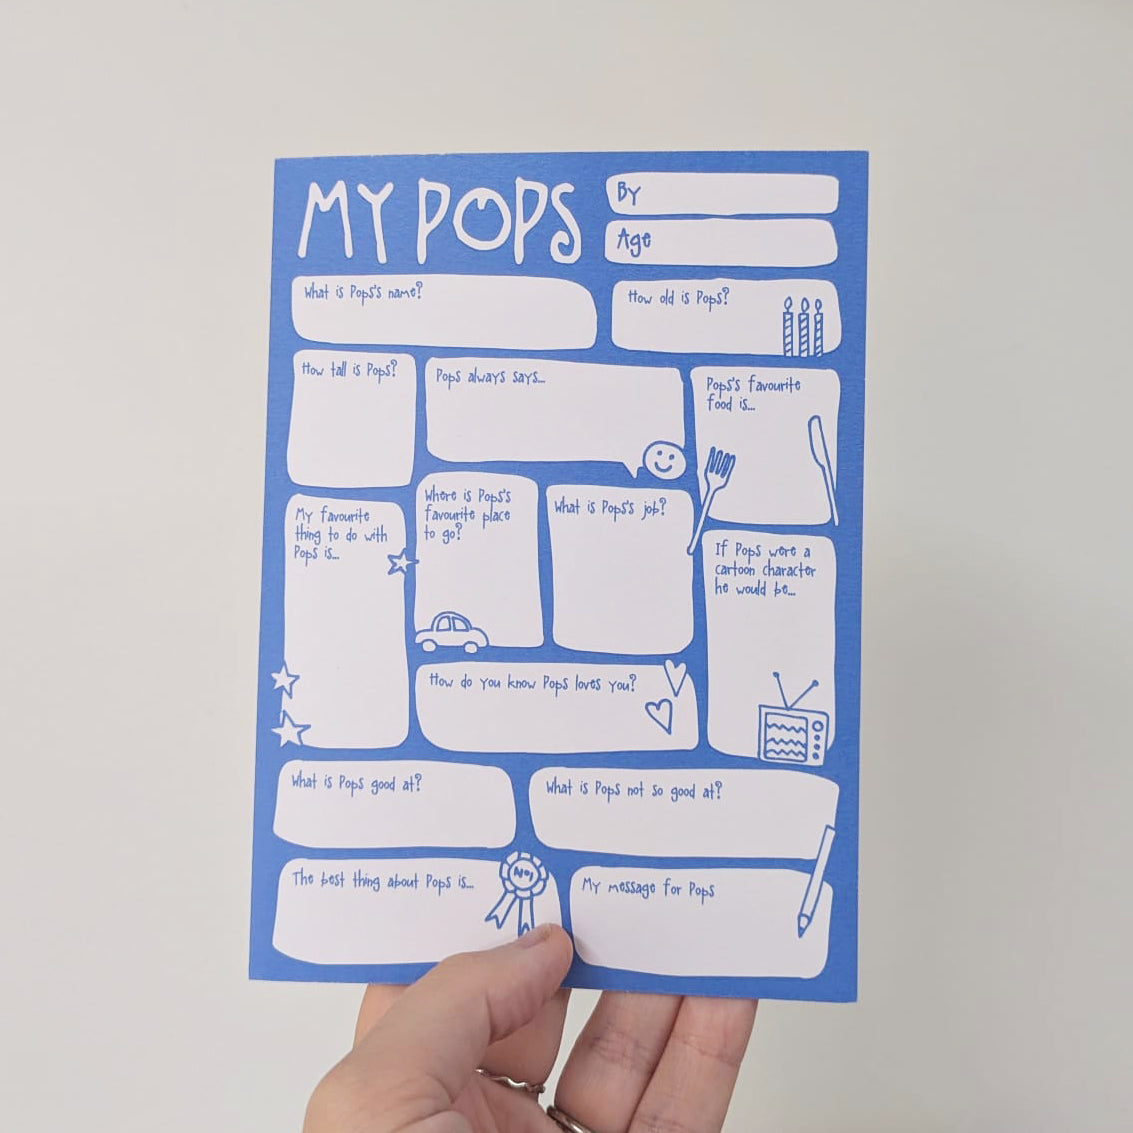 MY POPS
By
Age
What is Pops's name?
How old is Pops?
How tall is Pops?
Pops always says...
Pops's favourite
food is...
My favourite
thing to do with
Pops is...
Where is Pops's
favourite place
to go?
What is Pops's job?
If Pops were a
cartoon character
he would be...
How do you know Pops loves you?
What is Pops good at?
What is Pops not so good at?
The best thing about Pops is...
No1
My message for Pops